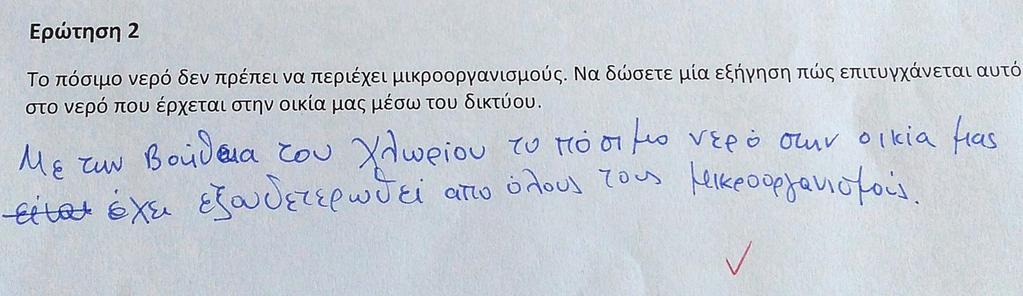 Ερώτηση 2
Το πόσιμο νερό δεν πρέπει να περιέχει μικροοργανισμούς. Να δώσετε μία εξήγηση πώς επιτυγχάνεται αυτό
στο νερό που έρχεται στην οικία μας μέσω του δικτύου.
Με την βοήθεια του χλωρίου το πόσιμο νερό στην οικία μας
είναι έχει εξουδετερωθεί απο όλους τους μικροοργανισμοίς.